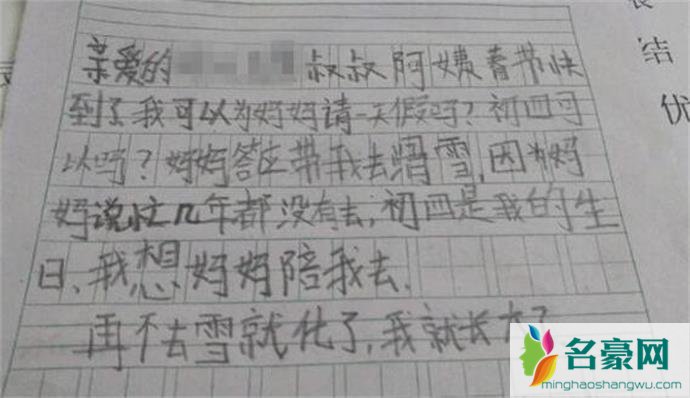 亲爱的 叔叔阿姨春节快
到了我可以为妈妈请一天假吗？初四可
以吗？妈妈答应带我去滑雪,因为妈
妈说忙几年都没有去,初四是我的生
日、我想妈妈陪我去.
再不去雪就化了,我就长大了
结
优
名豪网
minghaoshangwu.com